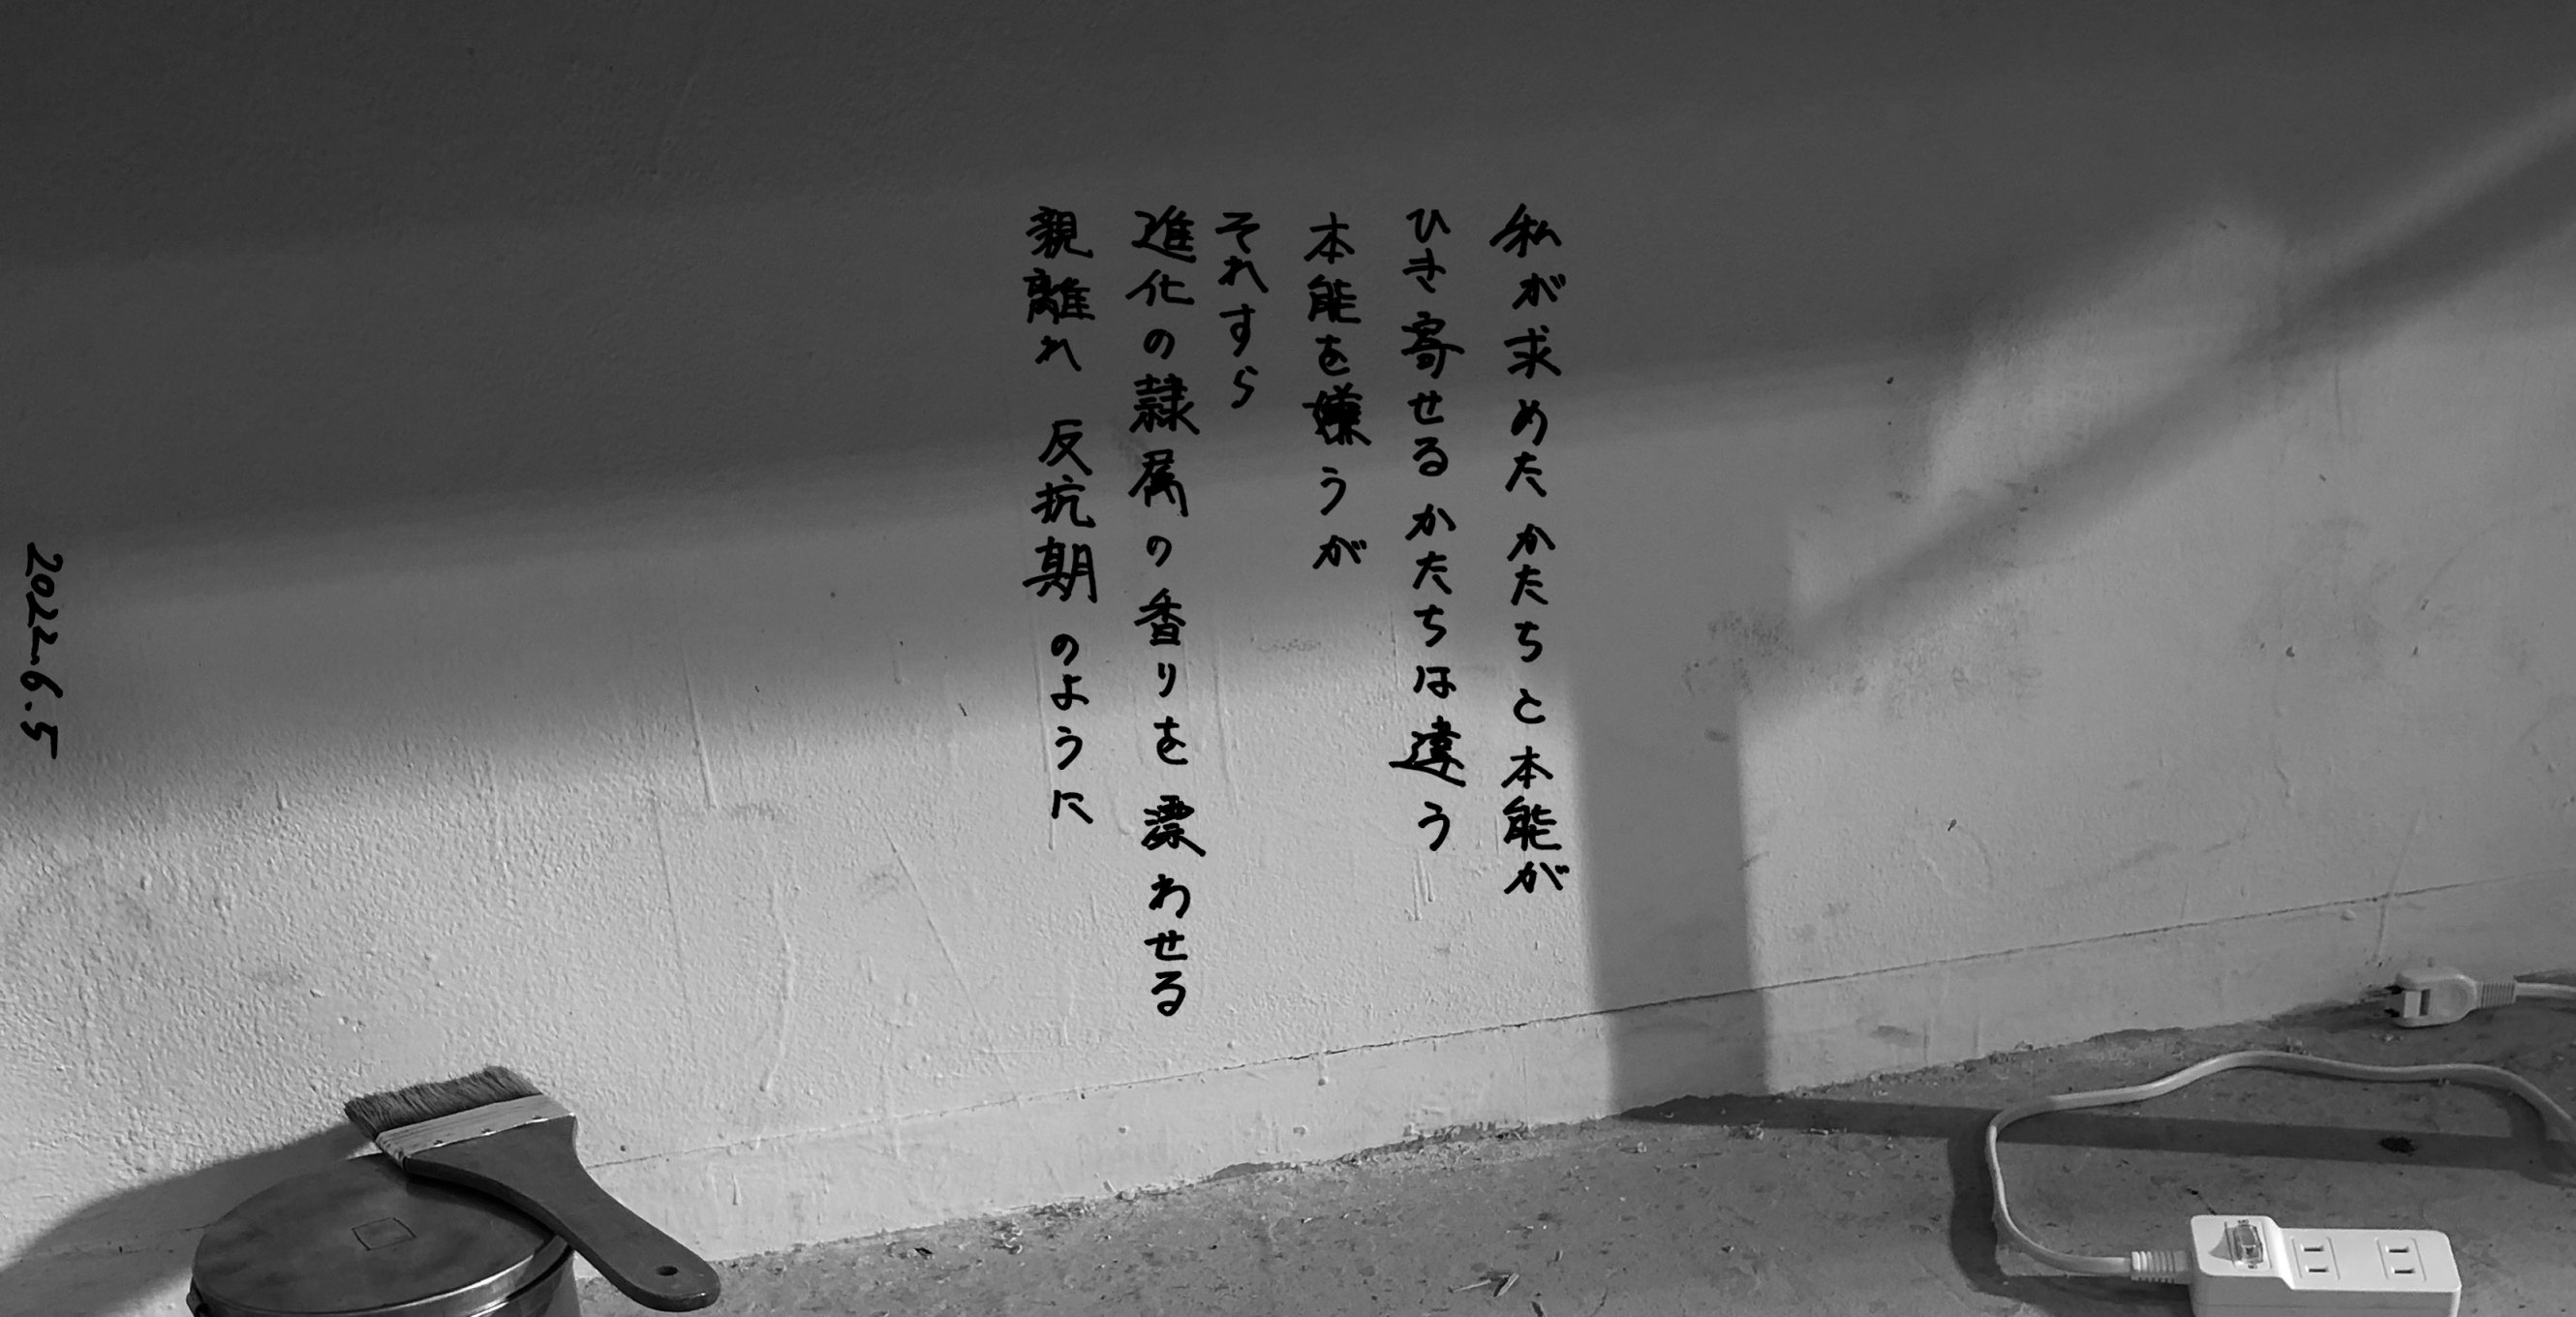 私が求めたかたちと本能が
ひき寄せるかたちは違う
本能を嫌うが
それすら
進化の隷属の香りを漂わせる
親離れ 反抗期のように
2022.6.5